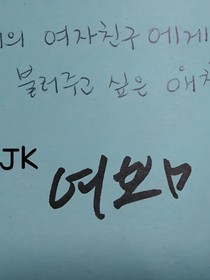 의 여자친구에게
불러주고 싶은 애
JK
여보